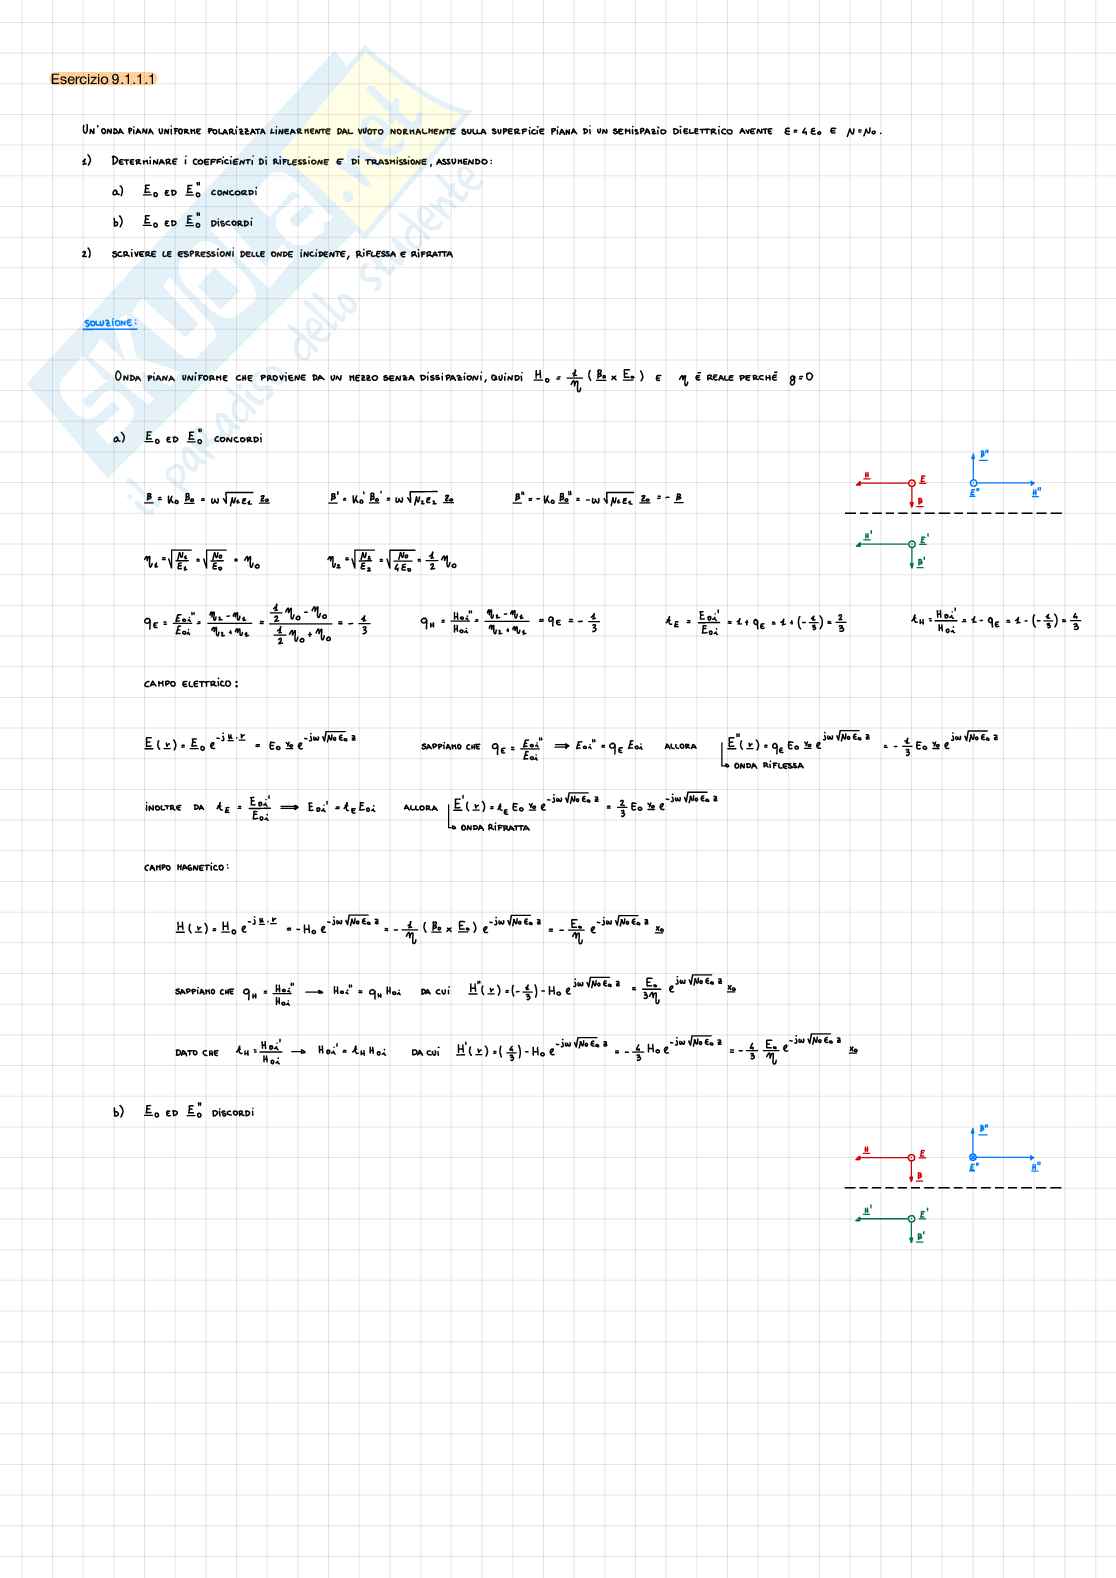 Esercizio 9.1.1.1
UN'ONDA PIANA UNIFORME POLARIZZATA LINEARMENTE DAL VUOTO NORMALMENTE SULLA SUPERFICIE PIANA DI UN SEMISPAZIO DIELETTRICO AVENTE ε = 4ε₀ E μ = μ₀.
1) DETERMINARE I COEFFICIENTI DI RIFLESSIONE E DI TRASMISSIONE, ASSUMENDO:
a) E₀ ED E₀'' CONCORDI
b) E₀ ED E₀'' DISCORDI
2) SCRIVERE LE ESPRESSIONI DELLE ONDE INCIDENTE, RIFLESSA E RIFRATTA
SOLUZIONE:
ONDA PIANA UNIFORME CHE PROVIENE DA UN MEZZO SENZA DISSIPAZIONI, QUINDI H₀ = 1/η (β₀ × E₀) E η É REALE PERCHÉ g=0
a) E₀ ED E₀'' CONCORDI
β = K₀ β₀ = ω√(μ₁ε₁) z₀ β' = K₀' β₀' = ω√(μ₂ε₂) z₀ β'' = -K₀ β₀'' = -ω√(μ₁ε₁) z₀ = -β
H E β β'' E'' H''
H' E' β'
η₁ = √(μ₁/ε₁) = √(μ₀/ε₀) = η₀ η₂ = √(μ₂/ε₂) = √(μ₀/4ε₀) = 1/2 η₀
q_E = E₀ᵢ''/E₀ᵢ = (η₂ - η₁)/(η₂ + η₁) = (1/2 η₀ - η₀)/(1/2 η₀ + η₀) = -1/3 q_H = H₀ᵢ''/H₀ᵢ = (η₂ - η₁)/(η₂ + η₁) = q_E = -1/3 t_E = E₀ᵢ'/E₀ᵢ = 1 + q_E = 1 + (-1/3) = 2/3 t_H = H₀ᵢ'/H₀ᵢ = 1 - q_E = 1 - (-1/3) = 4/3
CAMPO ELETTRICO:
E(r) = E₀ e^(-jk·r) = E₀ y₀ e^(-jω√(μ₀ε₀) z) SAPPIAMO CHE q_E = E₀ᵢ''/E₀ᵢ ⟹ E₀ᵢ'' = q_E E₀ᵢ ALLORA E''(r) = q_E E₀ y₀ e^(jω√(μ₀ε₀) z) = -1/3 E₀ y₀ e^(jω√(μ₀ε₀) z)
↳ ONDA RIFLESSA
INOLTRE DA t_E = E₀ᵢ'/E₀ᵢ ⟹ E₀ᵢ' = t_E E₀ᵢ ALLORA E'(r) = t_E E₀ y₀ e^(-jω√(μ₀ε₀) z) = 2/3 E₀ y₀ e^(-jω√(μ₀ε₀) z)
↳ ONDA RIFRATTA
CAMPO MAGNETICO:
H(r) = H₀ e^(-jk·r) = -H₀ e^(-jω√(μ₀ε₀) z) = -1/η (β₀ × E₀) e^(-jω√(μ₀ε₀) z) = -E₀/η e^(-jω√(μ₀ε₀) z) x₀
SAPPIAMO CHE q_H = H₀ᵢ''/H₀ᵢ → H₀ᵢ'' = q_H H₀ᵢ DA CUI H''(r) = (-1/3) - H₀ e^(jω√(μ₀ε₀) z) = E₀/3η e^(jω√(μ₀ε₀) z) x₀
DATO CHE t_H = H₀ᵢ'/H₀ᵢ → H₀ᵢ' = t_H H₀ᵢ DA CUI H'(r) = (4/3) - H₀ e^(-jω√(μ₀ε₀) z) = -4/3 H₀ e^(-jω√(μ₀ε₀) z) = -4/3 E₀/η e^(-jω√(μ₀ε₀) z) x₀
b) E₀ ED E₀'' DISCORDI
H E β β'' E'' H''
H' E' β'
SKUOLA.net
il paradiso dello studente